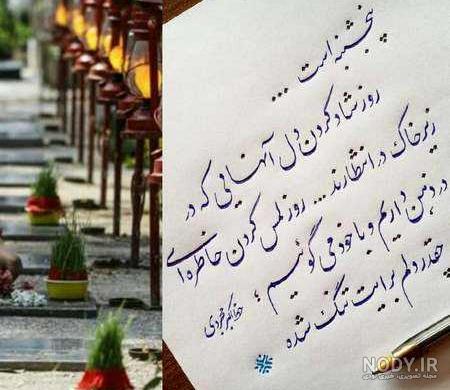 پنجشنبه است ...
روز شاد کردن دل آنهایی که در
زیر خاک در انتظارند ... روز لمس کردن خاطره‌ای
در ذهن داریم و با خود می‌گوئیم ؛
چقدر دلم برایت تنگ شده
NODY.IR